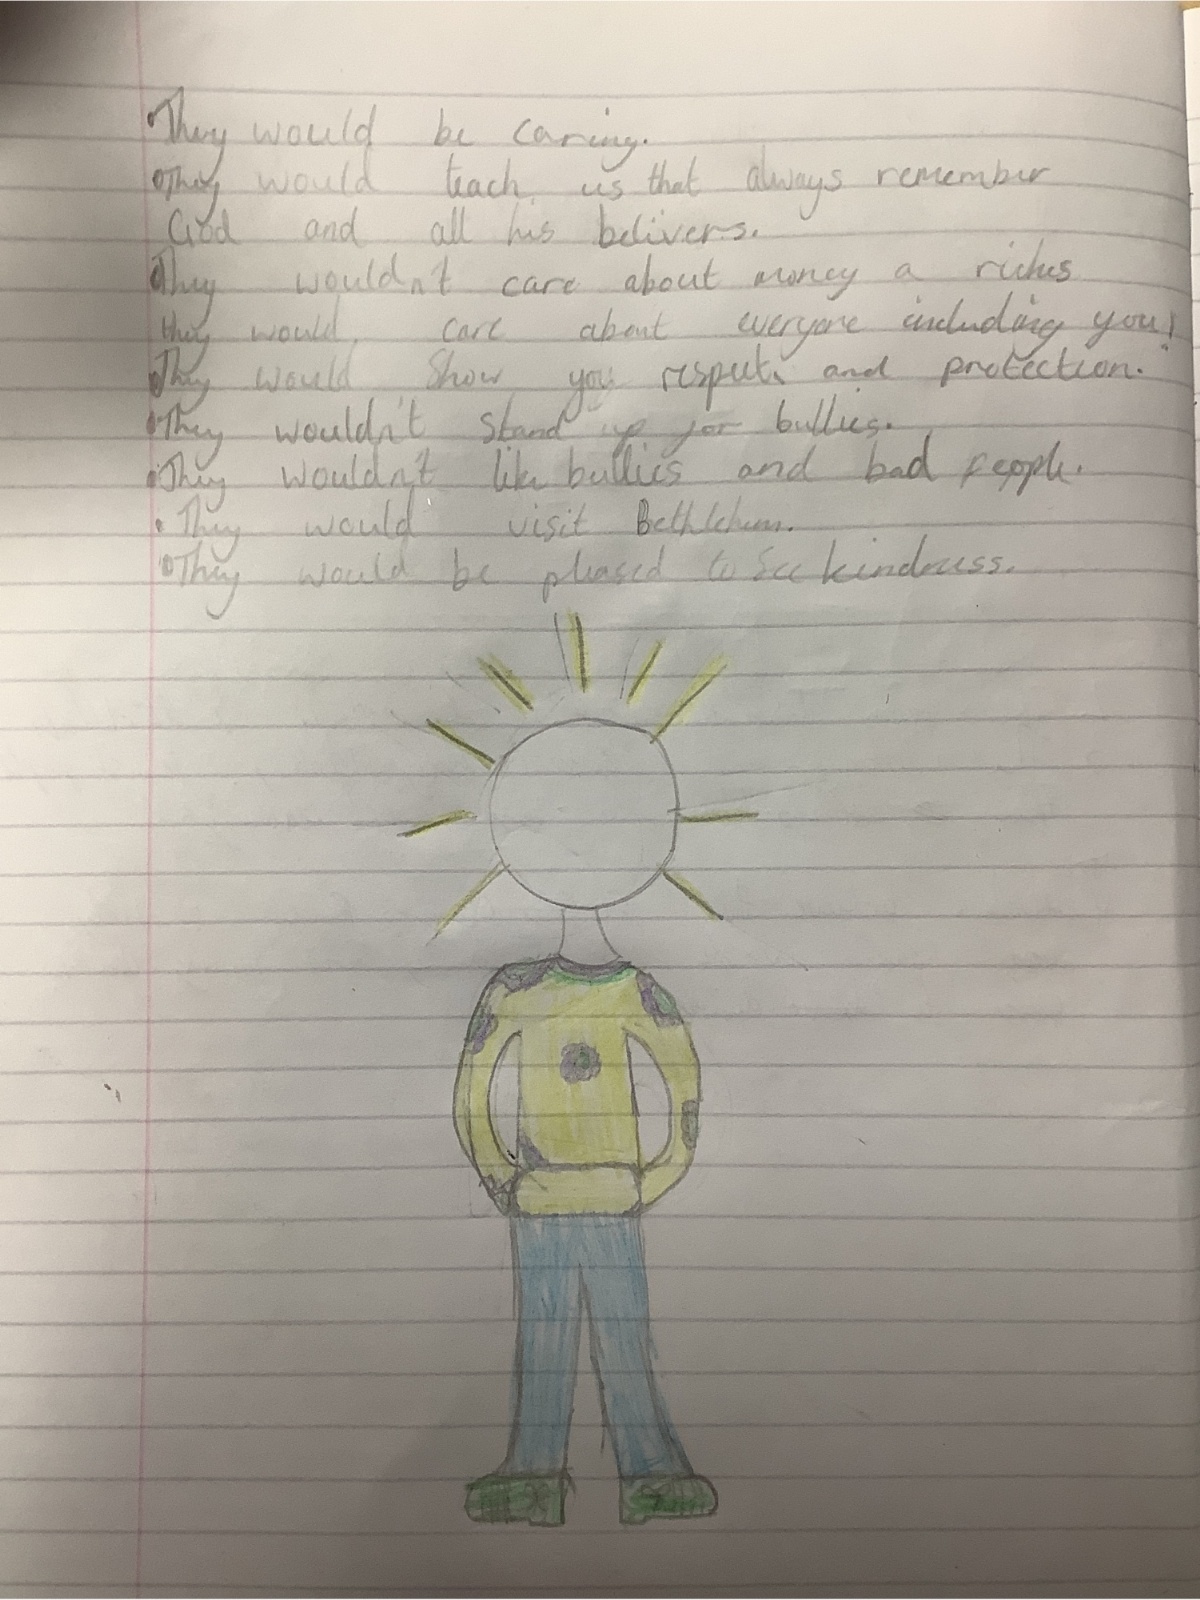 • They would be caring.
• They would teach us that always remember
God and all his belivers.
• They wouldn't care about money a riches
they would care about everyone including you!
• They would show you respect and protection.
• They wouldn't stand up for bullies.
• They wouldn't like bullies and bad people.
• They would visit Bethlehem.
• They would be pleased to see kindness.